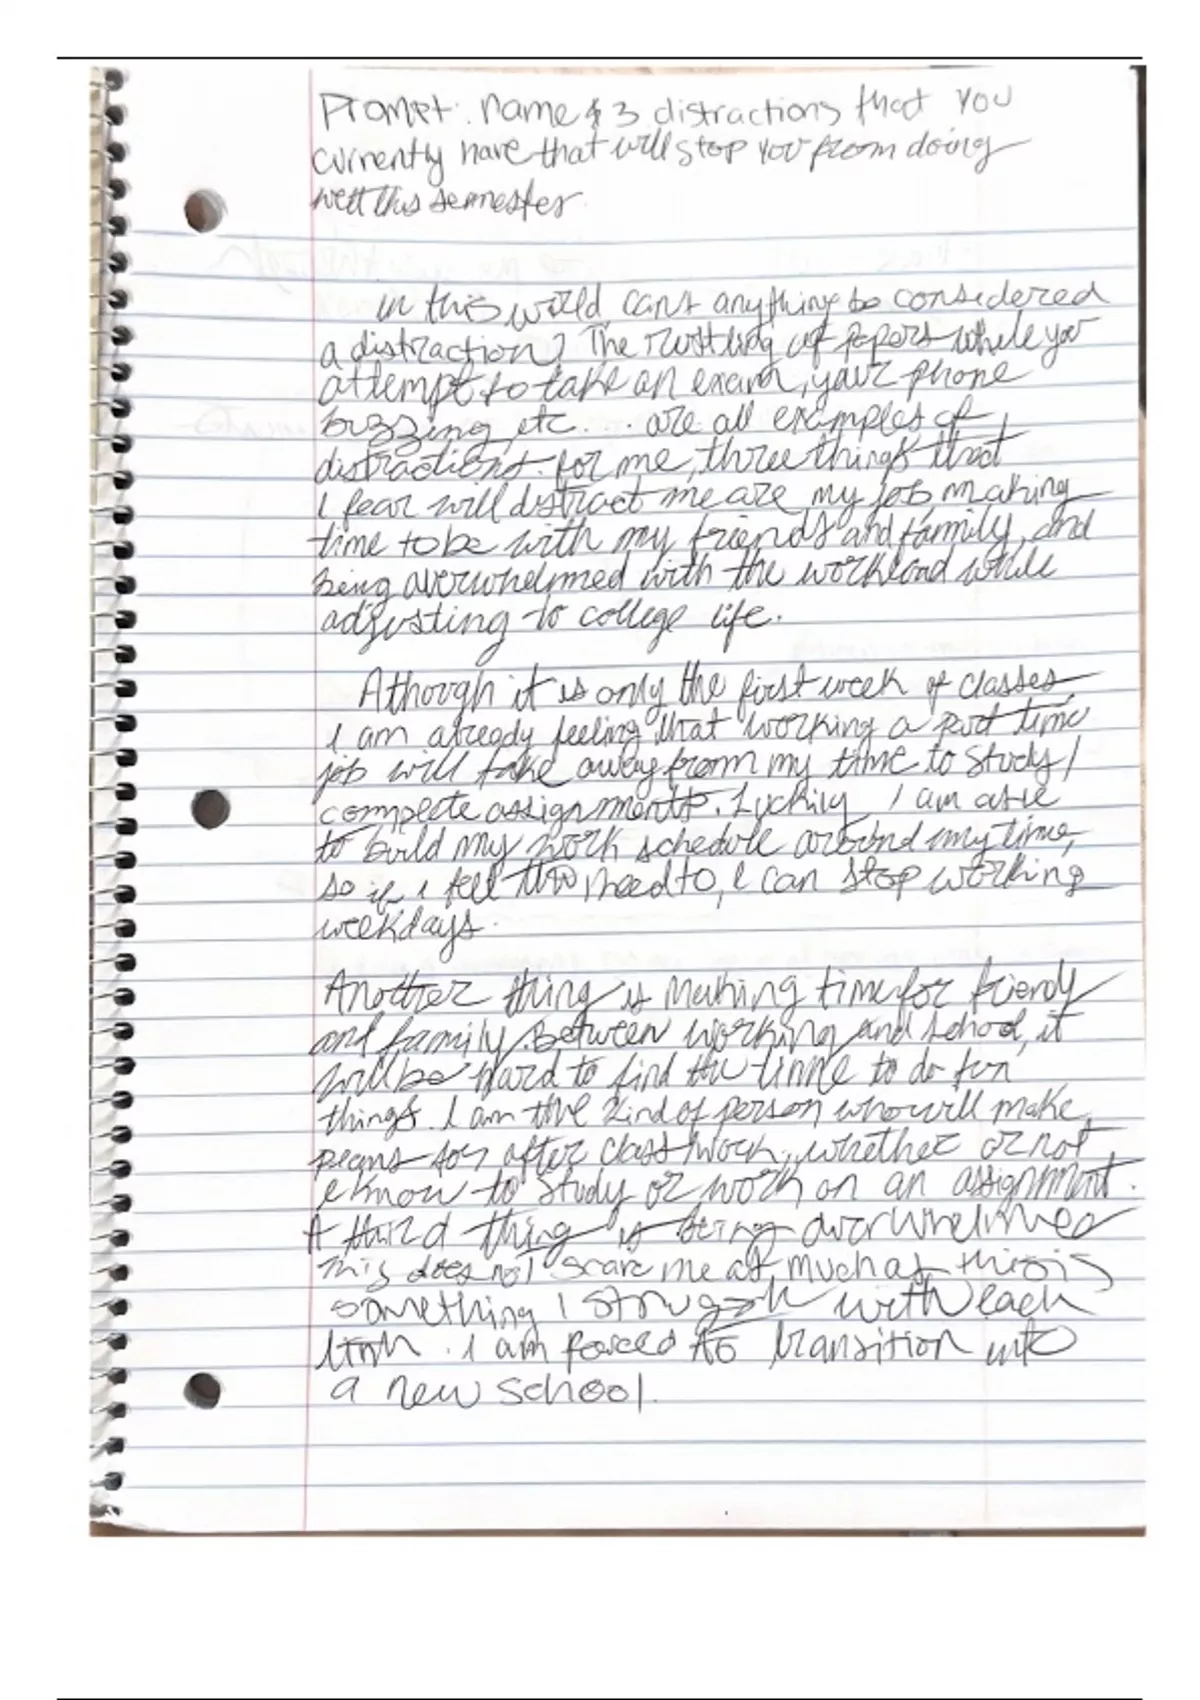 Prompt: name & 3 distractions that you
currently have that will stop you from doing
well this semester.
in this world can't anything be considered
a distraction? The rustling of papers while you
attempt to take an exam, your phone
buzzing, etc... are all examples of
distractions. for me, three things that
I fear will distract me are my job, making
time to be with my friends and family, and
being overwhelmed with the workload while
adjusting to college life.
Athough it is only the first week of classes,
I am already feeling that working a part time
job will take away from my time to study/
complete assignments. Luckily I am able
to build my work schedule around my time,
so if I feel the need to, I can stop working
weekdays.
Another thing is making time for friends
and family. Between working and school, it
will be hard to find the time to do fun
things. I am the kind of person who will make
plans for after class/work, whether or not
I know to study or work on an assignment.
A third thing is being overwhelmed
This does not scare me as much as this is
something I struggle with each
I am forced to transition into
a new school.